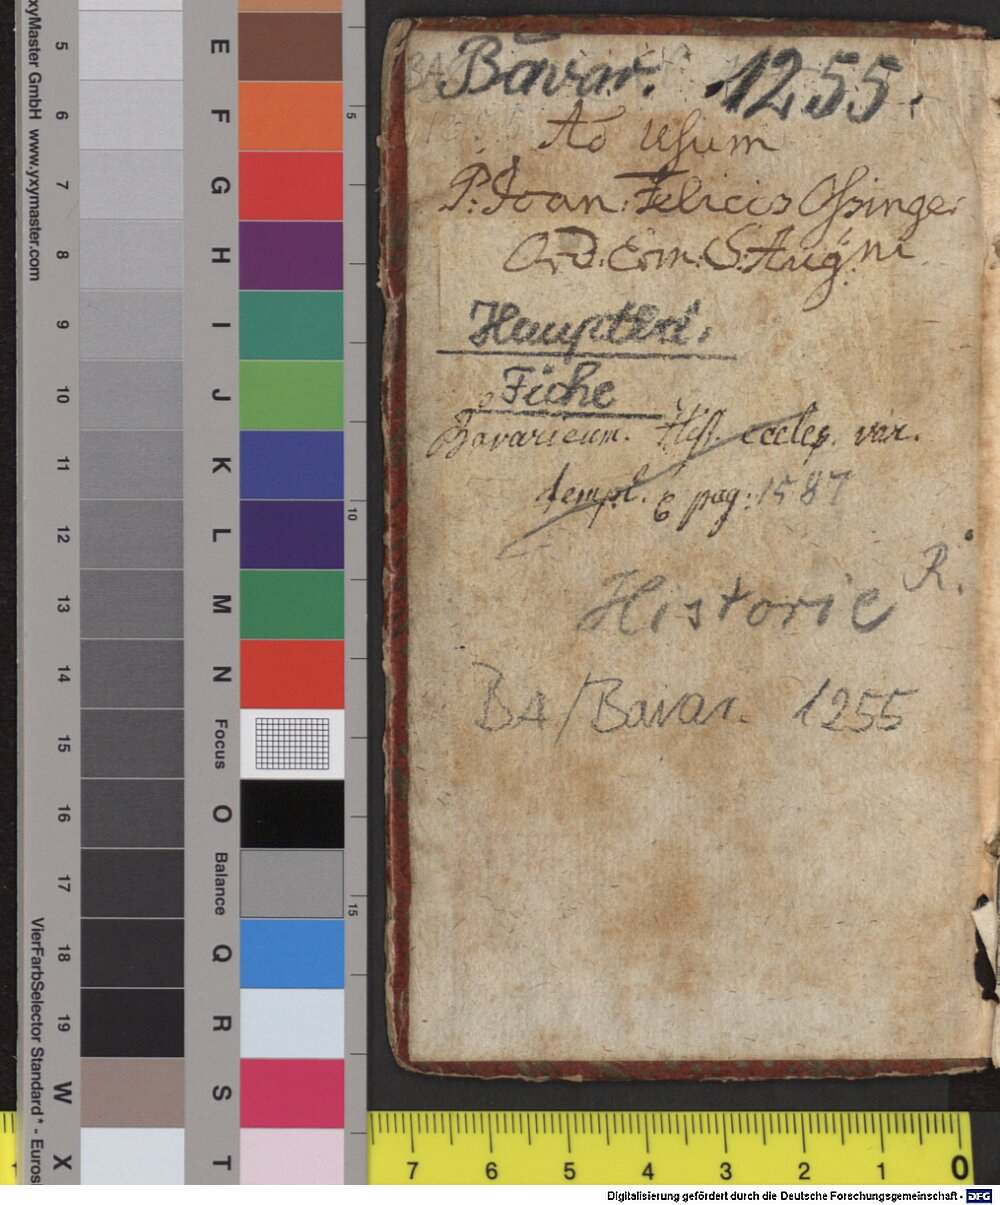 Bavar. 1255.
Ad Usum
P. Joan. Felicis Ossinger
Ord. Erm. S. Aug'ni.
Fiche
Bavaricum. Hist. eccles. var.
templ. 6 pag: 1587
Historie R.
BA/Bavar. 1255
yxyMaster GmbH www.yxymaster.com
VierFarbSelector Standard* - Euros
5
6
7
8
9
10
11
12
13
14
15
16
17
18
19
W
X
E
F
G
H
I
J
K
L
M
N
Focus
O
Balance
Q
R
S
T
5
10
15
7 6 5 4 3 2 1 0
Digitalisierung gefördert durch die Deutsche Forschungsgemeinschaft - DFG